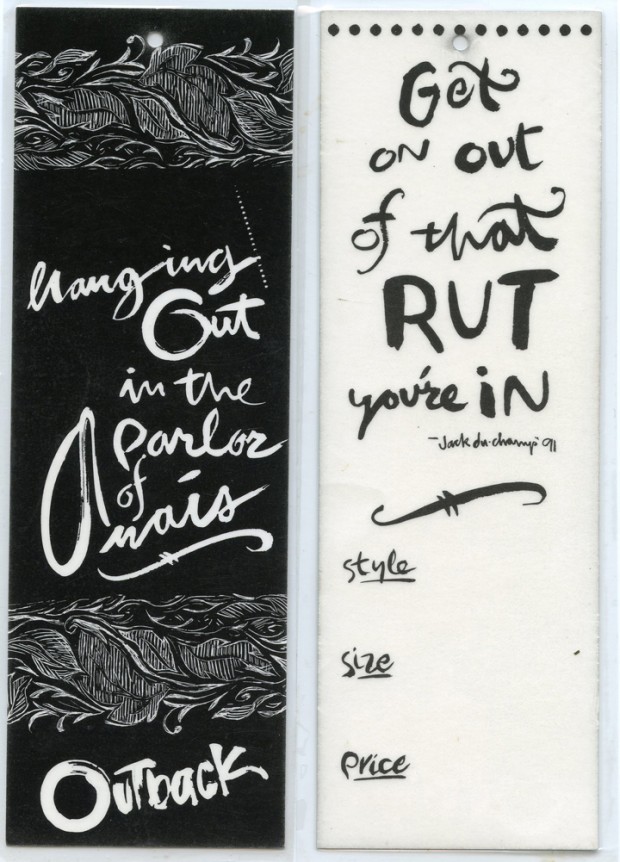 Hanging
Out
in the
Parlor
of
Anais
Outback
Get
on out
of that
RUT
you're iN
-Jack du-champ '91
style
size
price